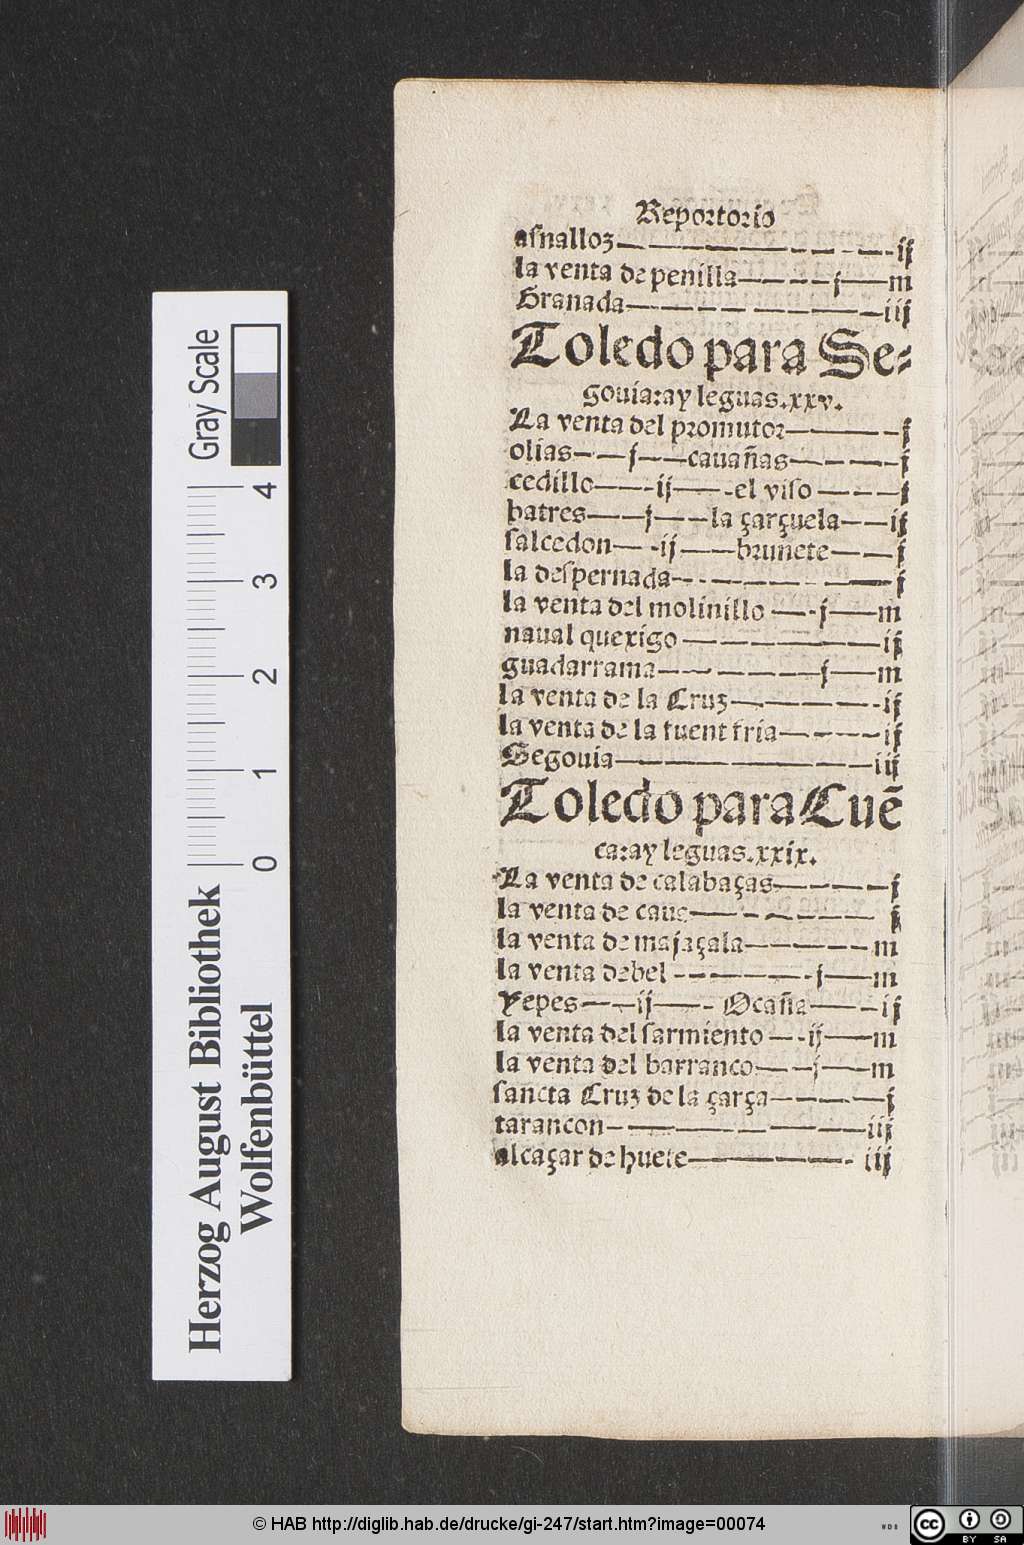 Reportorio
asnalloz — — — — — — — — ij
la venta de penilla — — — — j — m
Granada — — — — — — — — iij
Toledo para Se-
gouia:ay leguas.xxv.
La venta del promutor — — — — j
olias — — j — — cauañas — — — — j
cedillo — — ij — — el viso — — — j
batres — — j — — la çarçuela — — ij
salcedon — — ij — — brunete — — j
la despernada — — — — — — — j
la venta del molinillo — — j — m
naual quexigo — — — — — — ij
guadarrama — — — — — j — m
la venta de la Cruz — — — — — ij
la venta de la fuent fria — — — — ij
Segouia — — — — — — — iij
Toledo para Cuẽ
ca:ay leguas.xxix.
La venta de calabaças — — — — j
la venta de caue — — — — — — j
la venta de majaçala — — — — — m
la venta debel — — — — — j — m
Yepes — — ij — — Ocaña — — ij
la venta del sarmiento — — ij — m
la venta del barranco — — j — m
sancta Cruz de la çarça — — — — j
tarancon — — — — — — — iij
alcaçar de huete — — — — — iij
Herzog August Bibliothek
Wolfenbüttel
0 1 2 3 4
Gray Scale
© HAB http://diglib.hab.de/drucke/gi-247/start.htm?image=00074
WDB
cc BY SA